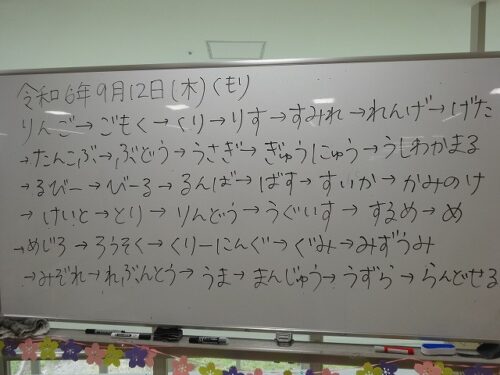 令和6年9月12日(木)くもり
りんご→ごもく→くり→りす→すみれ→れんげ→げた
→たんこぶ→ぶどう→うさぎ→ぎゅうにゅう→うしわかまる
→るびー→びーる→るんば→ばす→すいか→かみのけ
→けいと→とり→りんどう→うぐいす→するめ→め
→めじろ→ろうそく→くりーにんぐ→ぐみ→みずうみ
→みぞれ→れぶんとう→うま→まんじゅう→うずら→らんどせる